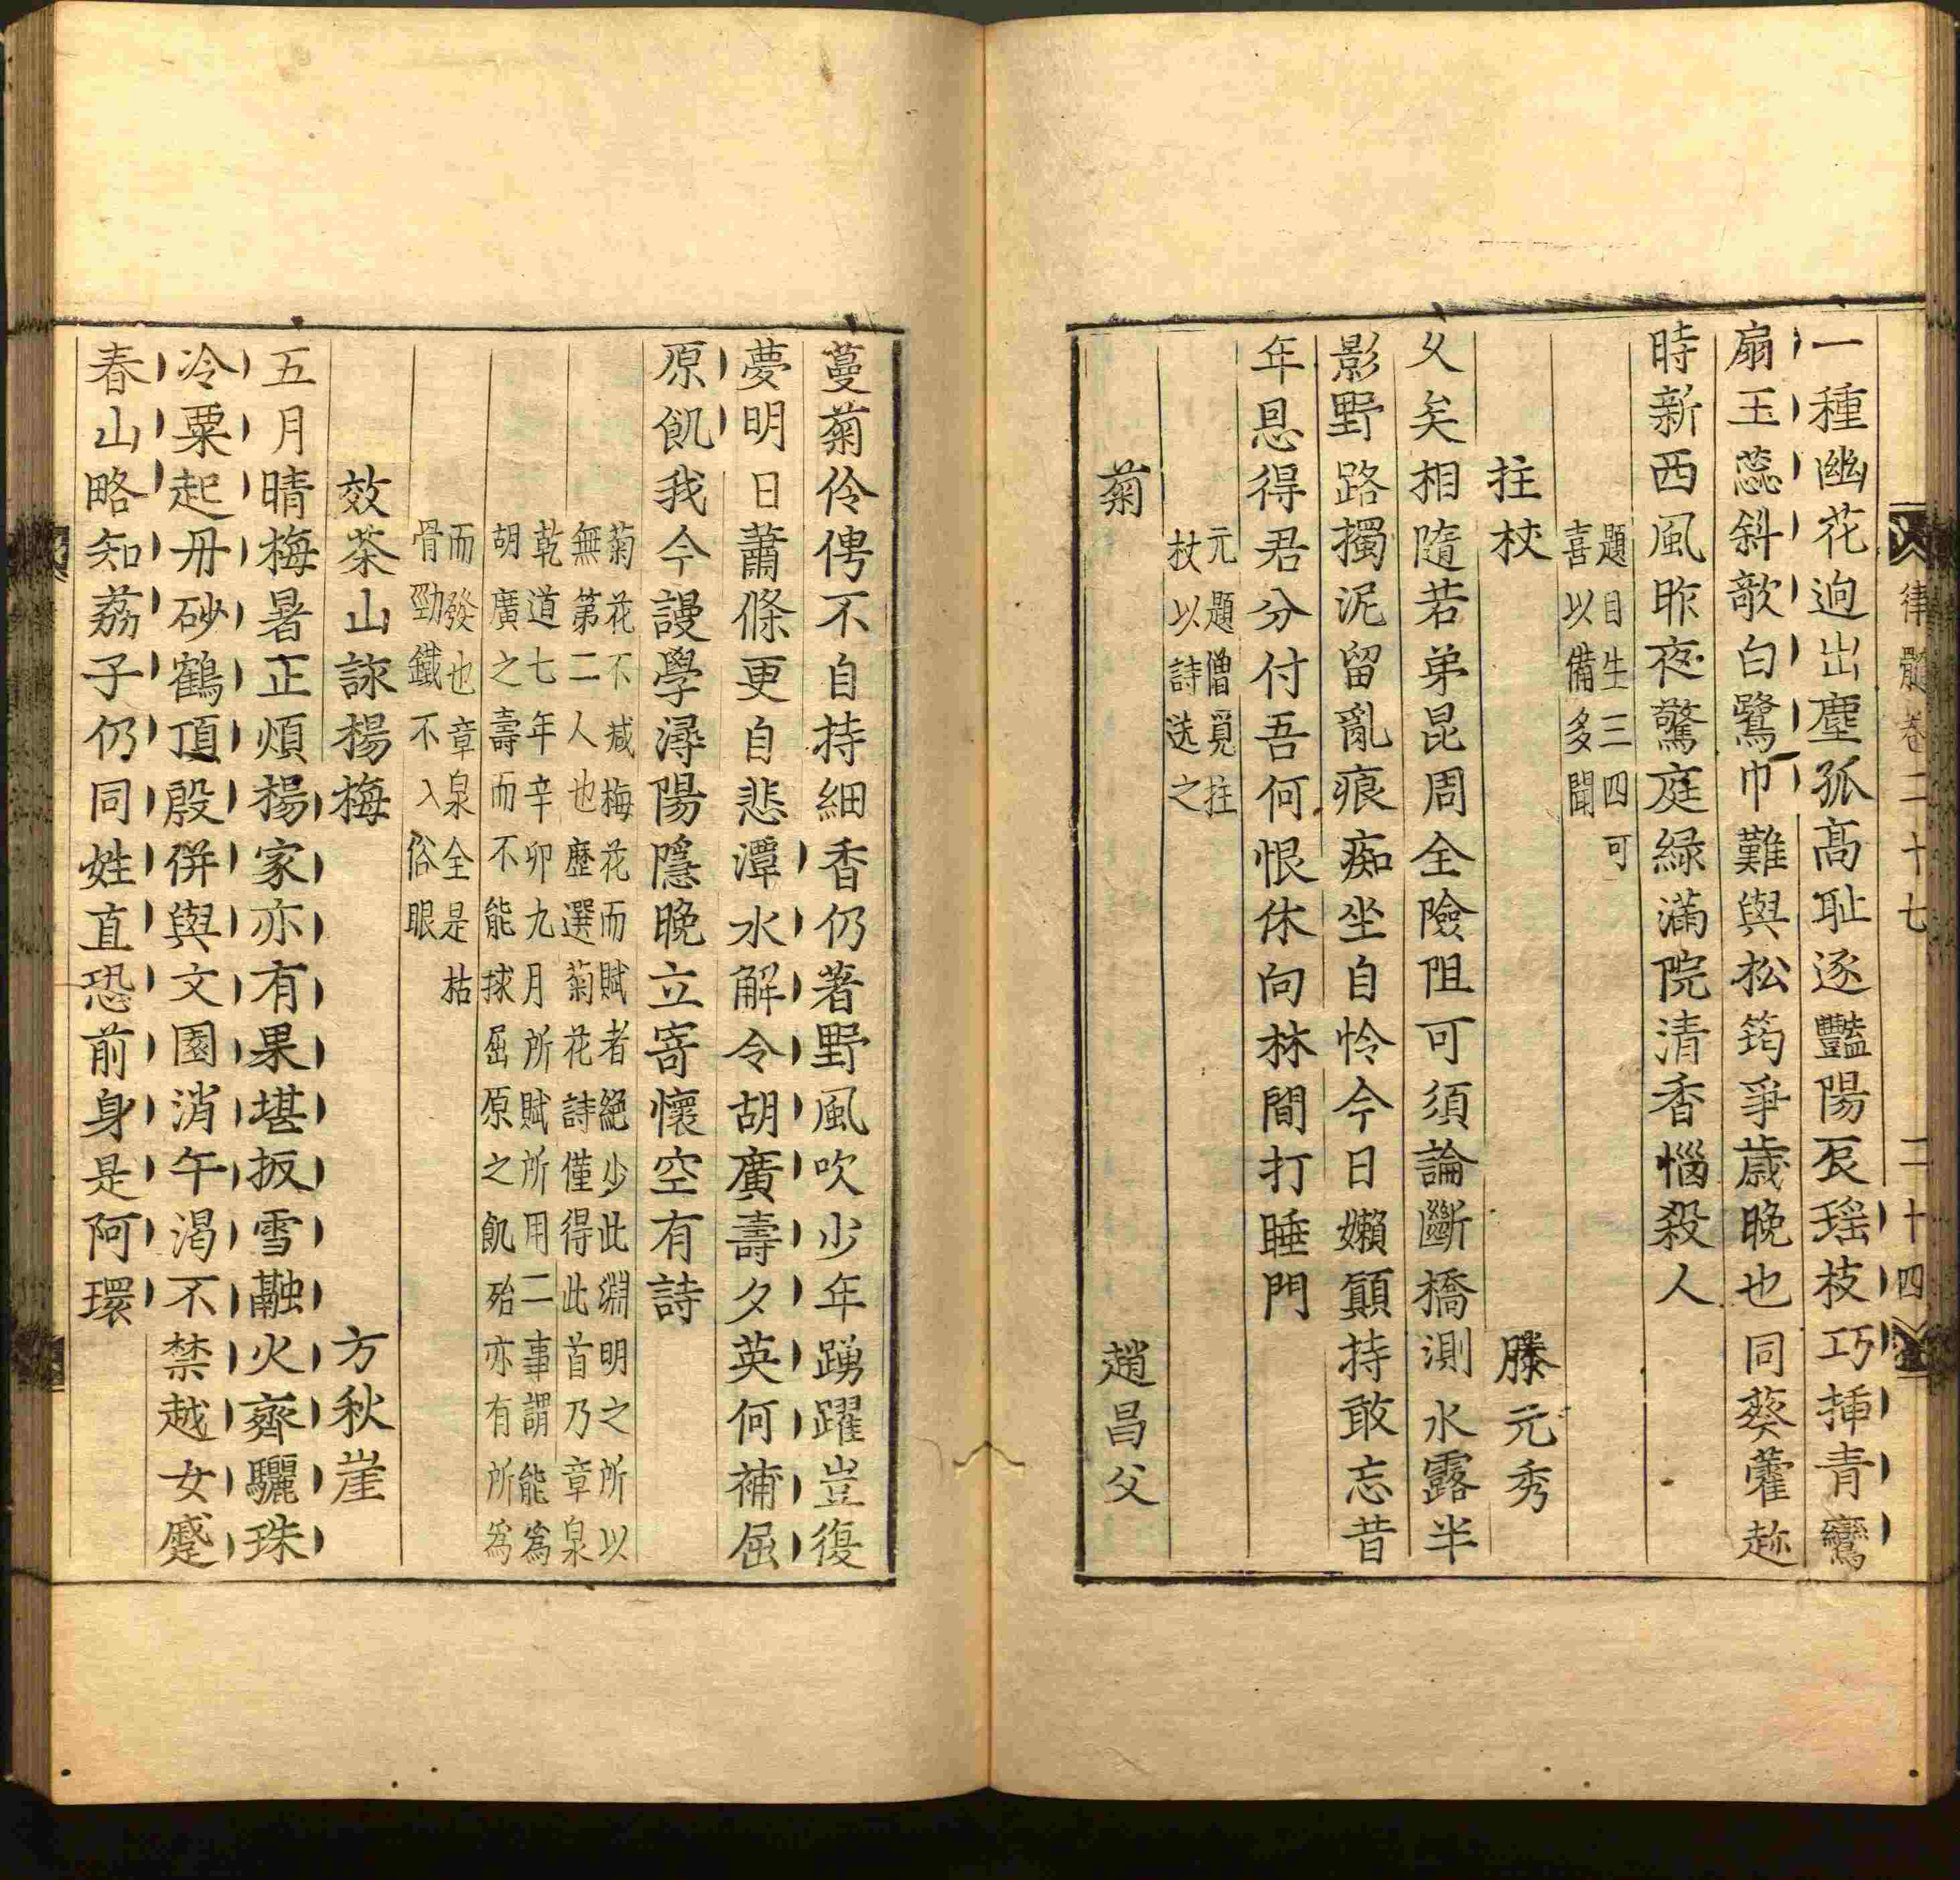 律髓卷二十七 二十四
一種幽花逈出塵孤高耻逐豔陽辰瑶枝巧揷青鸞
扇玉蕊斜歌白鷺巾難與松筠爭歲晚也同葵藿趂
時新西風昨夜驚庭綠滿院清香惱殺人
題目生三四可
喜以備多聞
拄杖 滕元秀
乆矣相隨若弟昆周全險阻可須論斷橋測水露半
影野路擉泥留亂痕痴坐自怜今日嬾顚持敢忘昔
年恩得君分付吾何恨休向林間打睡門
元題僧覓拄
杖以詩送之
菊 趙昌父
蔓菊伶俜不自持細香仍著野風吹少年踴躍豈復
夢明日蕭條更自悲潭水解令胡廣壽夕英何補屈
原飢我今謾學潯陽隱晚立寄懷空有詩
菊花不减梅花而賦者絕少此淵明之所以
無第二人也歷選菊花詩僅得此首乃章泉
乾道七年辛卯九月所賦所用二事謂能爲
胡廣之壽而不能捄屈原之飢殆亦有所爲
而發也章泉全是枯
骨勁鐵不入俗眼
效茶山詠楊梅 方秋崖
五月晴梅暑正煩楊家亦有果堪扳雪融火齊驪珠
冷粟起丹砂鶴頂殷併與文園消午渴不禁越女蹙
春山略知荔子仍同姓直恐前身是阿環